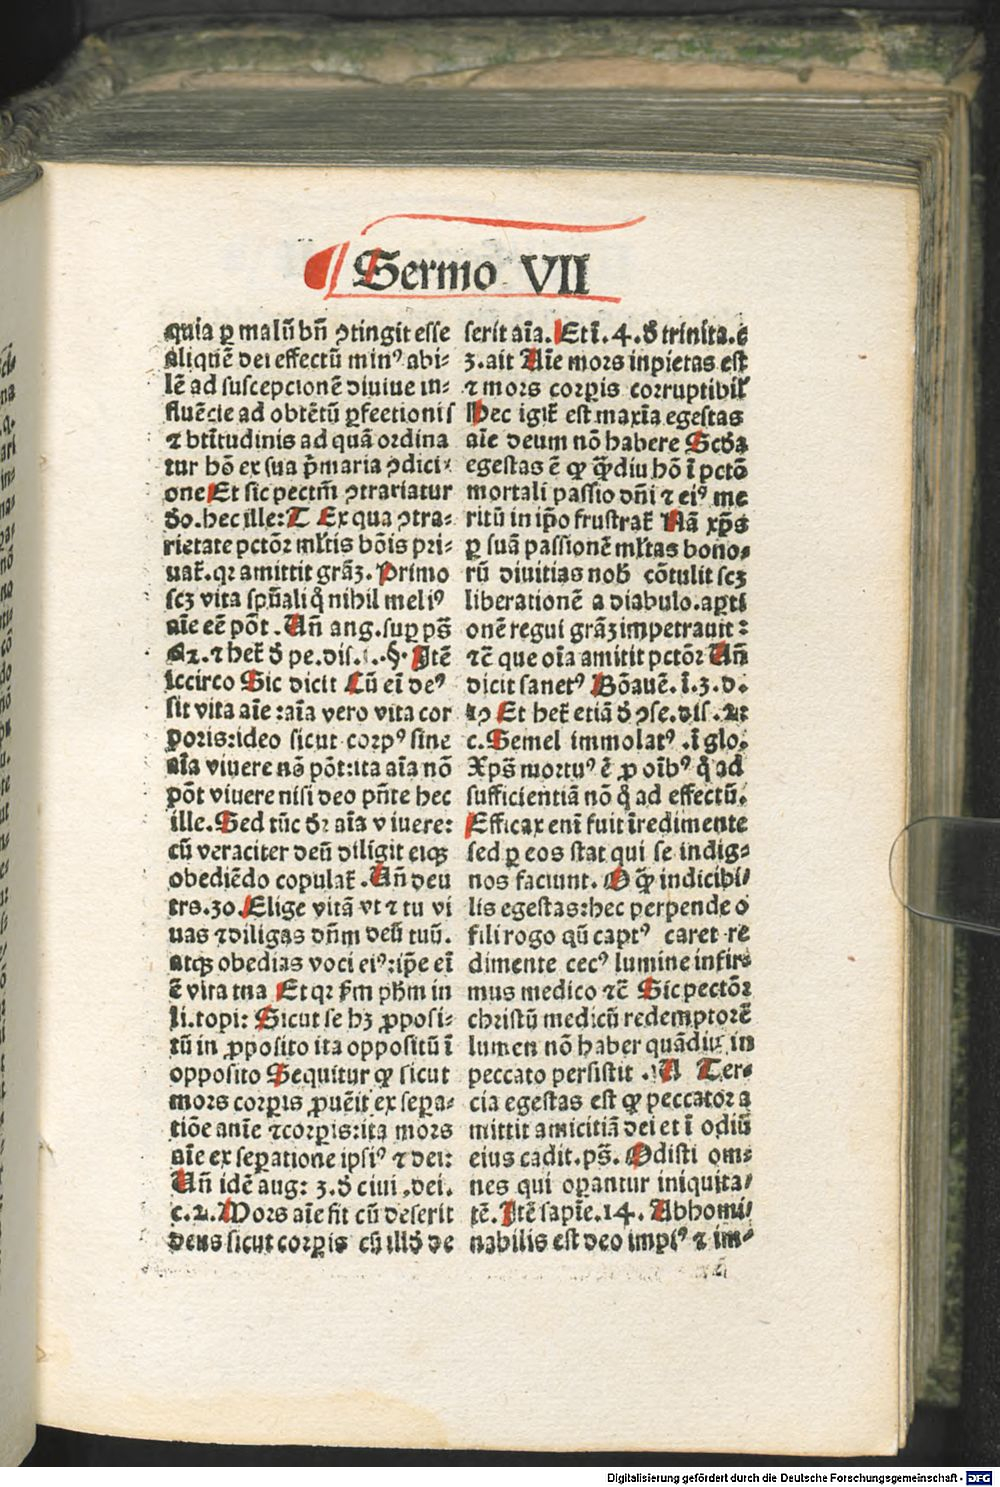 Sermo VII
quia ꝑ malū bn̄ ↄtingit esse
aliqn̄ē dei effectū minꝰ abi-
lē ad suscepcionē diuiue in-
fluēcie ad obtētū ꝑfectionis
⁊ btītudinis ad quā ordina
tur hō ex sua p̄maria ↄdici-
one Et sic pectm̄ ↄtrariatur
do. hec ille: T Ex qua ↄtra-
rietate pctōꝝ ml̄tis bōis pri-
uat̄. qꝛ amittit grāꝫ. Primo
scꝫ vita sp̄uali q̄ nihil meliꝰ
aīe eē pōt. Un̄ aug. suꝑ ps̄
⁊ het̄ đ pe. dis. §. Itē
Iccirco Sic dicit Cū eī deꝰ
sit vita aīe: aīa vero vita cor
poris: ideo sicut corpꝰ sine
aīa viuere nō pōt: ita aīa nō
pōt viuere nisi deo pn̄te hec
ille. Sed tūc đꝛ aīa viuere:
cū veraciter deū diligit eiqꝫ
obediēdo copulat̄. Un̄ deu
trs. 30. Elige vitā vt ⁊ tu vi
uas ⁊ diligas dn̄m deū tuū.
atqꝫ obedias voci eiꝰ: ip̄e eī
ē vita tua Et qꝛ fm̄ phm̄ in
li. topi: Sicut se hꝫ ꝓposi-
tū in ꝓposito ita oppositū ī
opposito Sequitur qđ sicut
mors corꝑis ꝓuēit ex seꝑa-
tiōe anīe ⁊ corꝑis: ita mors
aīe ex seꝑatione ipsiꝰ ⁊ dei:
Un̄ idē aug: 3. đ ciui. dei.
c. 2. Mors aīe fit cū deserit
deus sicut corꝑis cū illđ de
serit aīa. Et ī. 4. đ trinita. c
3. ait Aīe mors inpietas est
⁊ mors corꝑis corruptibil̄
Hec igit̄ est maxīa egestas
aīe deum nō habere Scđa
egestas ē qđ q̄diu hō ī pctō
mortali passio dn̄i ⁊ eiꝰ me
ritū in ip̄o frustrat̄ Nā xp̄s
ꝑ suā passionē ml̄tas bono-
rū diuitias nob̄ cōtulit scꝫ
liberationē a diabulo. aꝑti
onē regui grāꝫ impetrauit:
⁊c̄ que oīa amitit pctōꝛ Un̄
dicit sanctꝰ Bōauē. ī. 3. d.
Et het̄ etiā đ ↄse. dis. 2:
c. Semel immolatꝰ. ī glo.
Xps̄ mortuꝰ ē ꝓ oībꝰ q̄ ad
sufficientiā nō q̄ ad effectū.
Efficax enī fuit īredimente
sed ꝑ eos stat qui se indig-
nos faciunt. O q̄ indicibi-
lis egestas: hec perpende o
fili rogo qū captꝰ caret re
dimente cecꝰ lumine infir-
mus medico ⁊c̄ Sic pectōꝛ
christū medicū redemptorē
lumen nō haber quādiu in
peccato persistit. A Ter-
cia egestas est qđ peccator a
mittit amicitiā dei et ī odiū
eius cadit. ps̄. Odisti om-
nes qui oꝑantur iniquita-
tē. Itē sapīe. 14. Abhomi-
nabilis est deo impiꝰ ⁊ im-
Digitalisierung gefördert durch die Deutsche Forschungsgemeinschaft - DFG